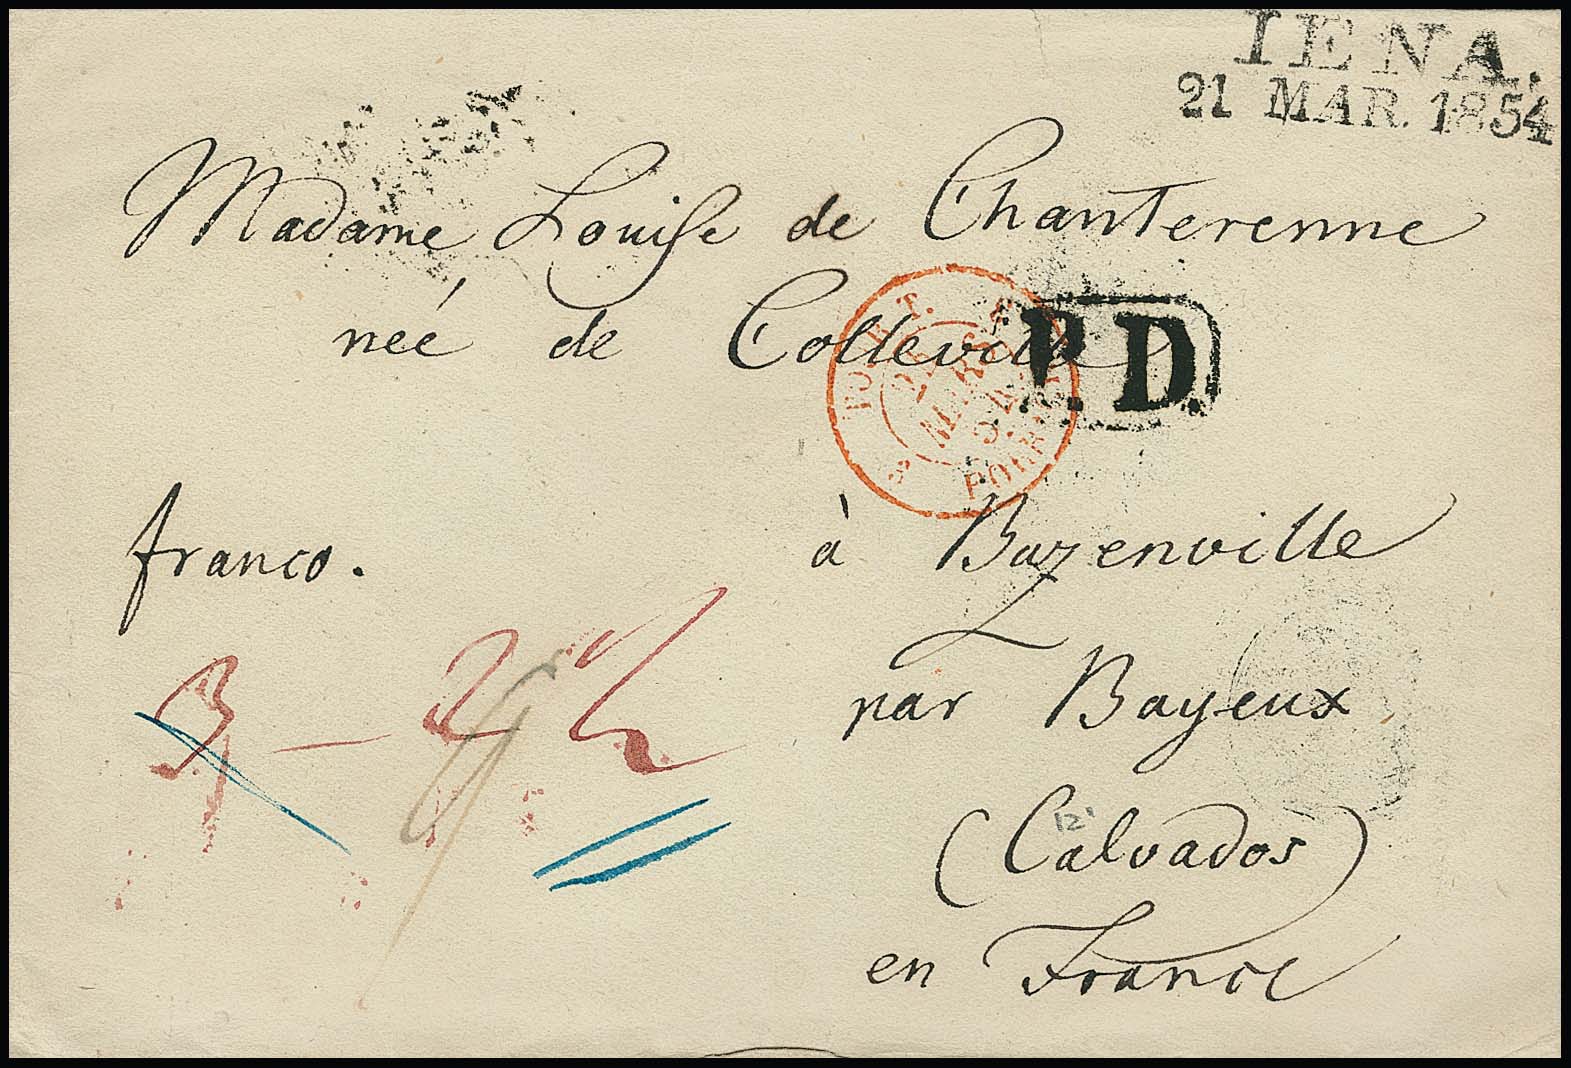 IENA.
21 MAR. 1854
Madame Louise de Chanterenne
neé de Colleville
P.D.
franco.
à Bazenville
par Bayeux
(Calvados)
en France
12'